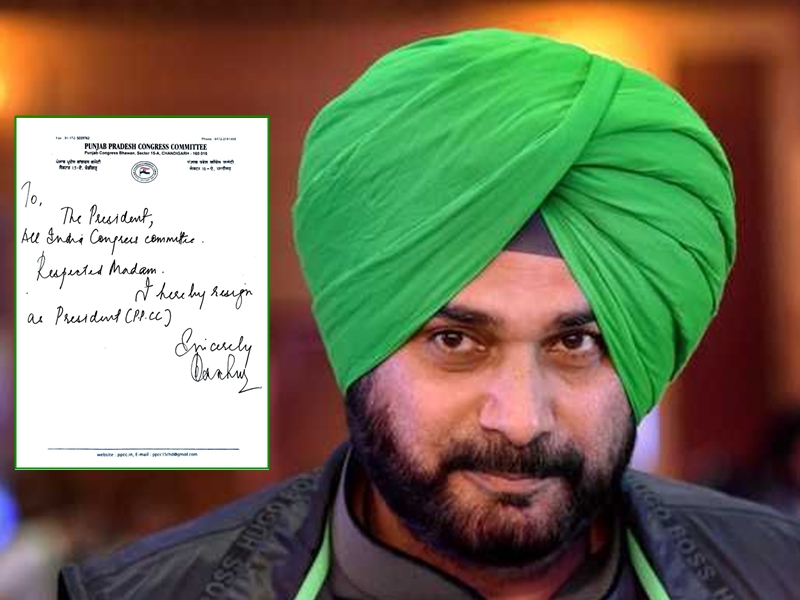 Phone :
PUNJAB PRADESH CONGRESS COMMITTEE
Punjab Congress Bhawan, Sector 15-A, CHANDIGARH - 160 018
To,
The President,
All India Congress committee.
Respected Madam.
I hereby resign
as President (PPCC)
Sincerely
website : ppcc.in, E-mail : ppcc15chd@gmail.com
HUGO BOSS
BOSS HUGO BOSS